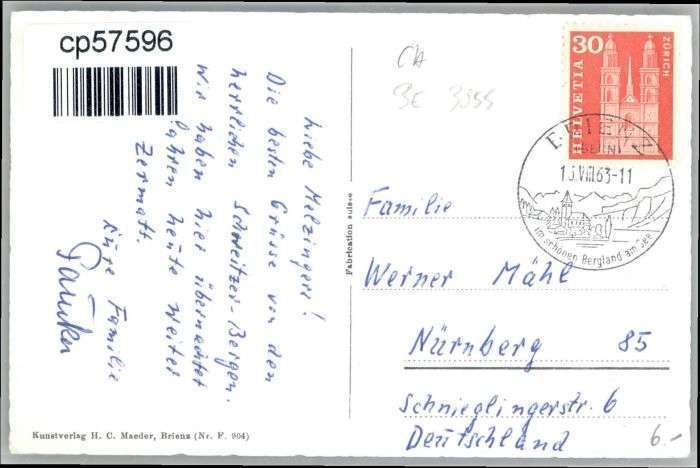 cp57596
Liebe Melzingers!
Die besten Grüsse von den
herrlichen Schweitzer-Bergen.
Wir haben hier übernachtet
fahren heute weiter
Zermatt.
Eure Familie
CH
3E 3955
30
ZÜRICH
HELVETIA
BRIENZ
(BERN)
13.VIII.63-11
Im schönen Bergland am See
Fabrication suisse
Familie
Werner Mähl
Nürnberg 85
Schnieglingerstr. 6
Deutschland
6.-
Kunstverlag H. C. Maeder, Brienz (Nr. F. 904)